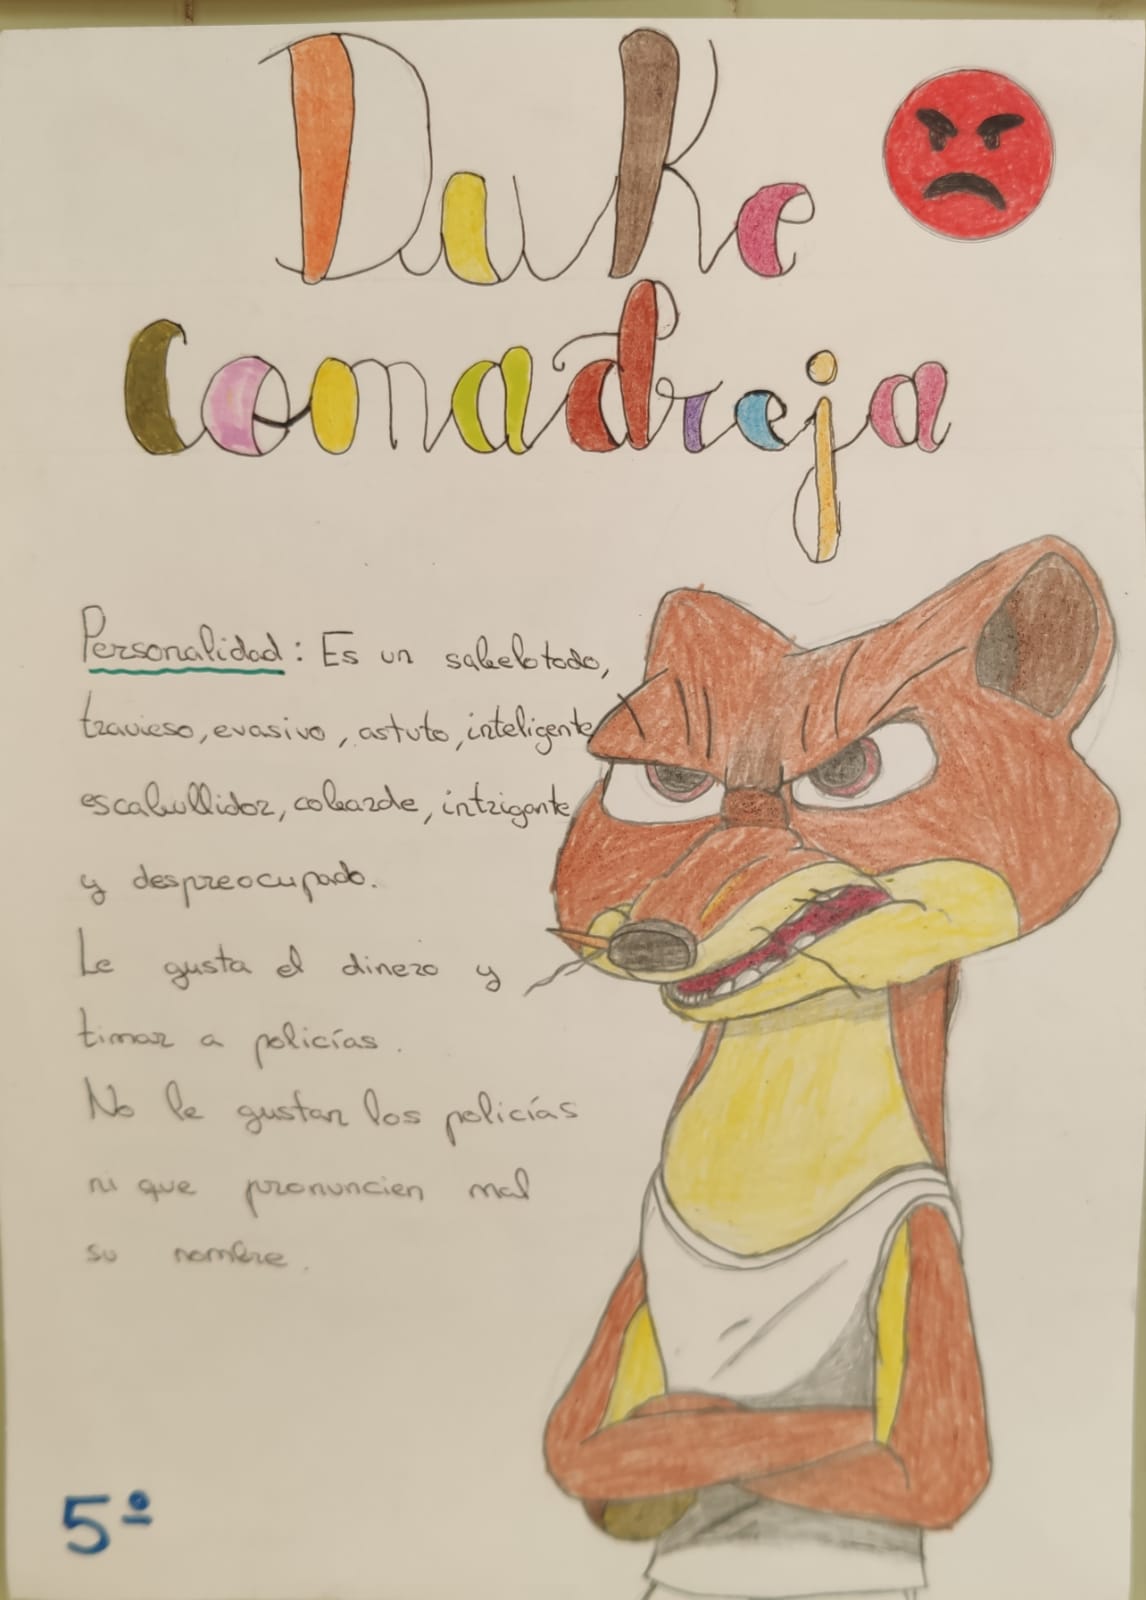 Duke
Comadreja
Personalidad: Es un sabelotodo,
travieso, evasivo, astuto, inteligente
escabullidor, cobarde, intrigante
y despreocupado.
Le gusta el dinero y
timar a policías.
No le gustan los policías
ni que pronuncien mal
su nombre.
5º